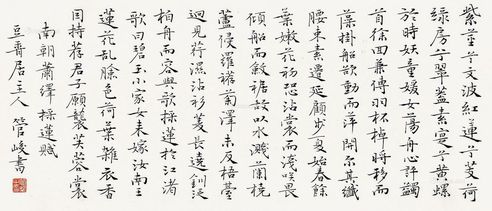 紫莖兮文波紅蓮兮芰荷
綠房兮翠蓋素實兮黃螺
於時妖童媛女蕩舟心許鷁
首徐回兼傳羽杯棹將移而
藻掛船欲動而萍開尔其纖
腰束素遷延顧步夏始春餘
葉嫩花初恐沾裳而淺咲畏
傾船而斂裾故以水濺蘭橈
蘆侵羅袸菊澤未反梧臺
迥見荇濕沾衫菱長遶釧泛
柏舟而容與歌採蓮於江渚
歌曰碧玉小家女來嫁汝南王
蓮花亂臉色荷葉雜衣香
因持荐君子願襲芙蓉裳
南朝蕭繹採蓮賦
豆齋居主人 管峻書